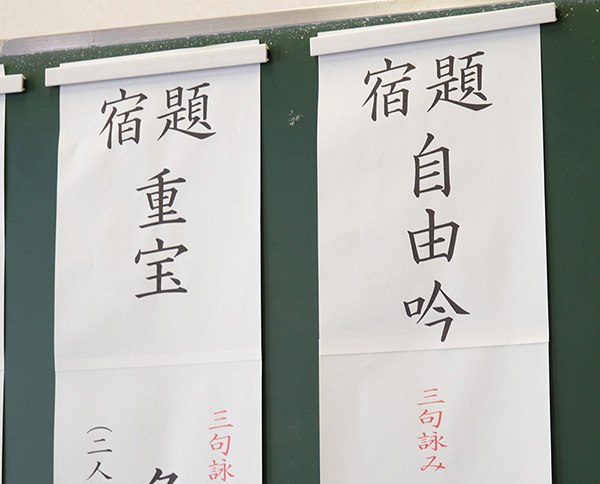 宿題
自由吟
三句詠み
宿題
重宝
三句詠
（二人